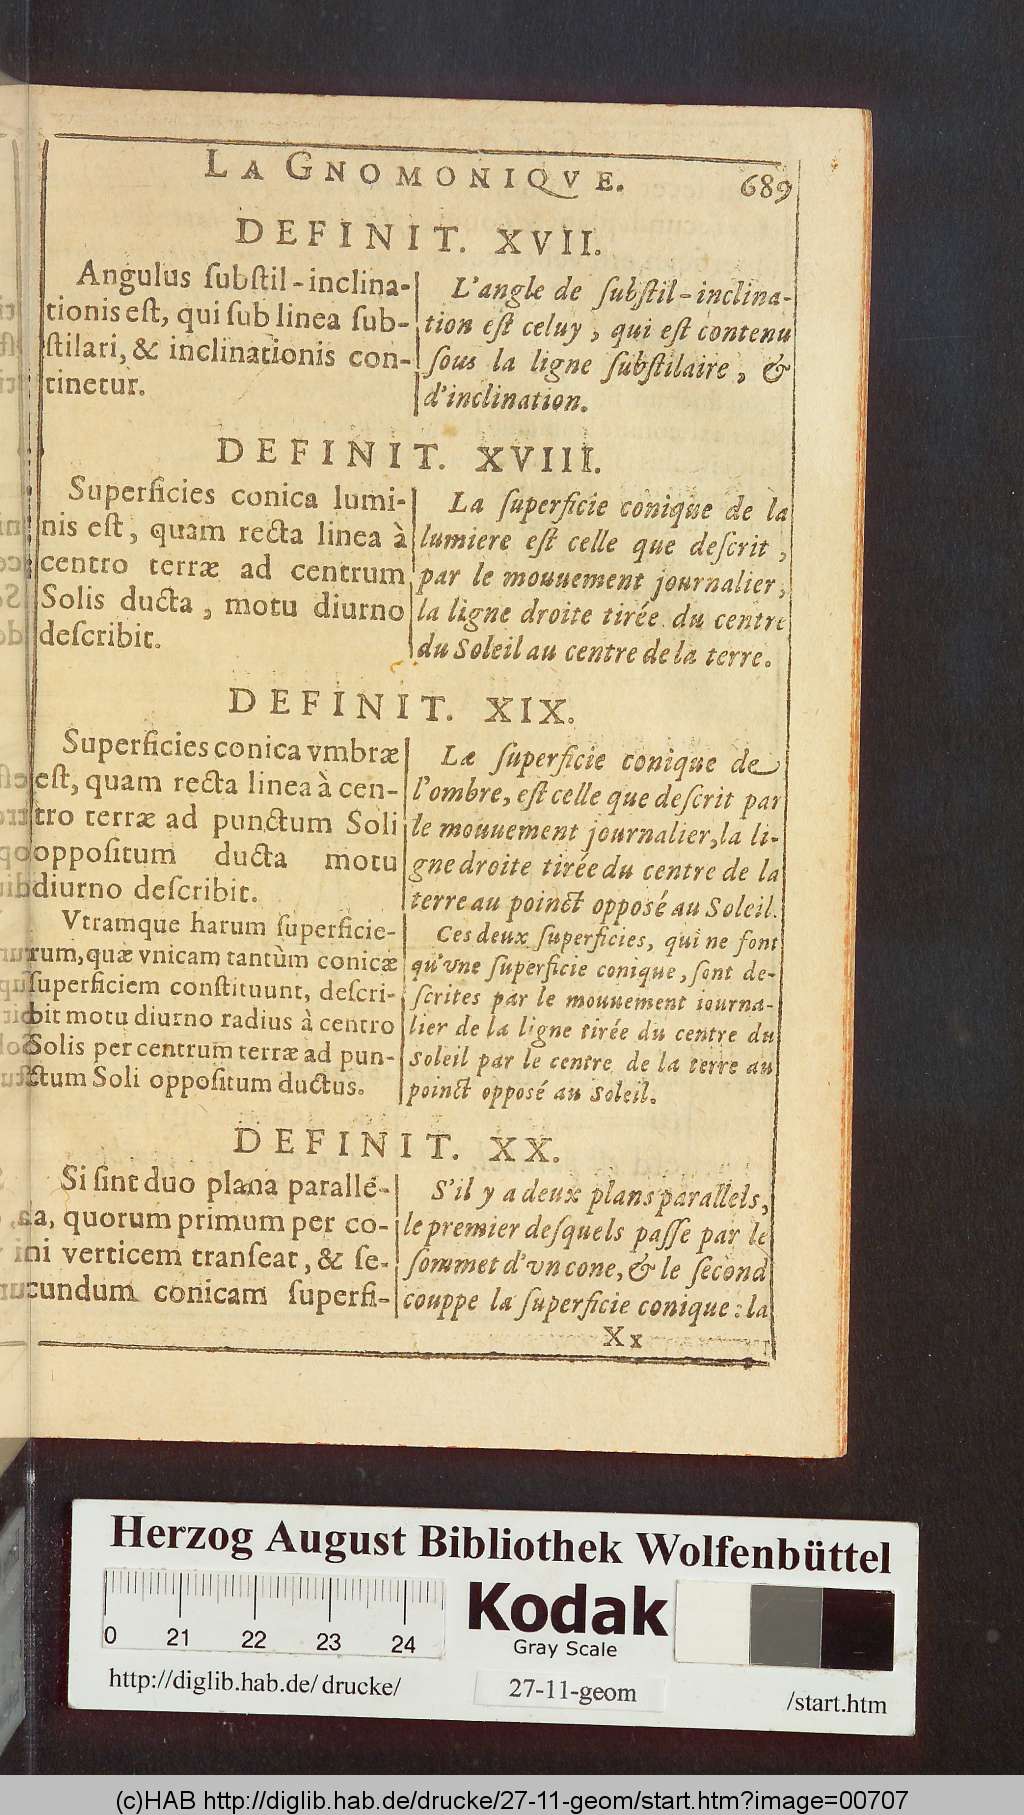 LA GNOMONIQVE. 689
DEFINIT. XVII.
Angulus ſubſtil-inclina-
tionis eſt, qui ſub linea ſub-
ſtilari, & inclinationis con-
tinetur.
L'angle de ſubſtil-inclina-
tion eſt celuy, qui eſt contenu
ſous la ligne ſubſtilaire, &
d'inclination.
DEFINIT. XVIII.
Superficies conica lumi-
nis eſt, quam recta linea à
centro terræ ad centrum
Solis ducta, motu diurno
deſcribit.
La ſuperficie conique de la
lumiere eſt celle que deſcrit,
par le mouuement journalier,
la ligne droite tirée du centre
du Soleil au centre de la terre.
DEFINIT. XIX.
Superficies conica vmbræ
eſt, quam recta linea à cen-
tro terræ ad punctum Soli
oppoſitum ducta motu
diurno deſcribit.
Vtramque harum ſuperficie-
rum, quæ vnicam tantùm conicæ
ſuperficiem conſtituunt, deſcri-
bit motu diurno radius à centro
Solis per centrum terræ ad pun-
ctum Soli oppoſitum ductus.
La ſuperficie conique de
l'ombre, eſt celle que deſcrit par
le mouuement journalier, la li-
gne droite tirée du centre de la
terre au poinct opposé au Soleil.
Ces deux ſuperficies, qui ne font
qu'vne ſuperficie conique, ſont de-
ſcrites par le mouuement iourna-
lier de la ligne tirée du centre du
Soleil par le centre de la terre au
poinct opposé au Soleil.
DEFINIT. XX.
Si ſint duo plana paralle-
la, quorum primum per co-
ni verticem tranſeat, & ſe-
cundum conicam ſuperfi-
S'il y a deux plans parallels,
le premier deſquels paſſe par le
ſommet d'vn cone, & le ſecond
couppe la ſuperficie conique: la
Xx
Herzog August Bibliothek Wolfenbüttel
0 21 22 23 24
Kodak
Gray Scale
http://diglib.hab.de/drucke/
27-11-geom
/start.htm
(c)HAB http://diglib.hab.de/drucke/27-11-geom/start.htm?image=00707